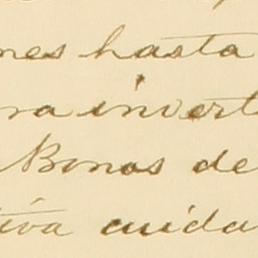 nes hasta
ra invert
Bonos de
tiva cuida